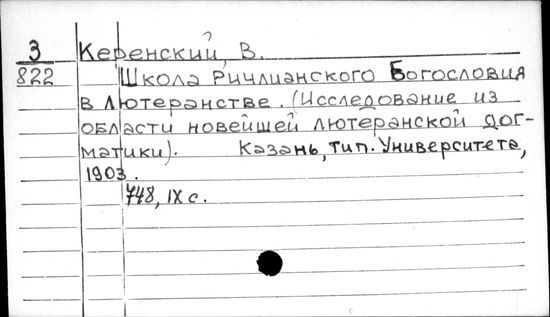 3 Керенский, В.
822 Школа Ричлианского Богословия
в лютеранстве. (Исследование из
области новейшей лютеранской дог-
матики). Казань, тип. Университета,
1903.
748, IX с.